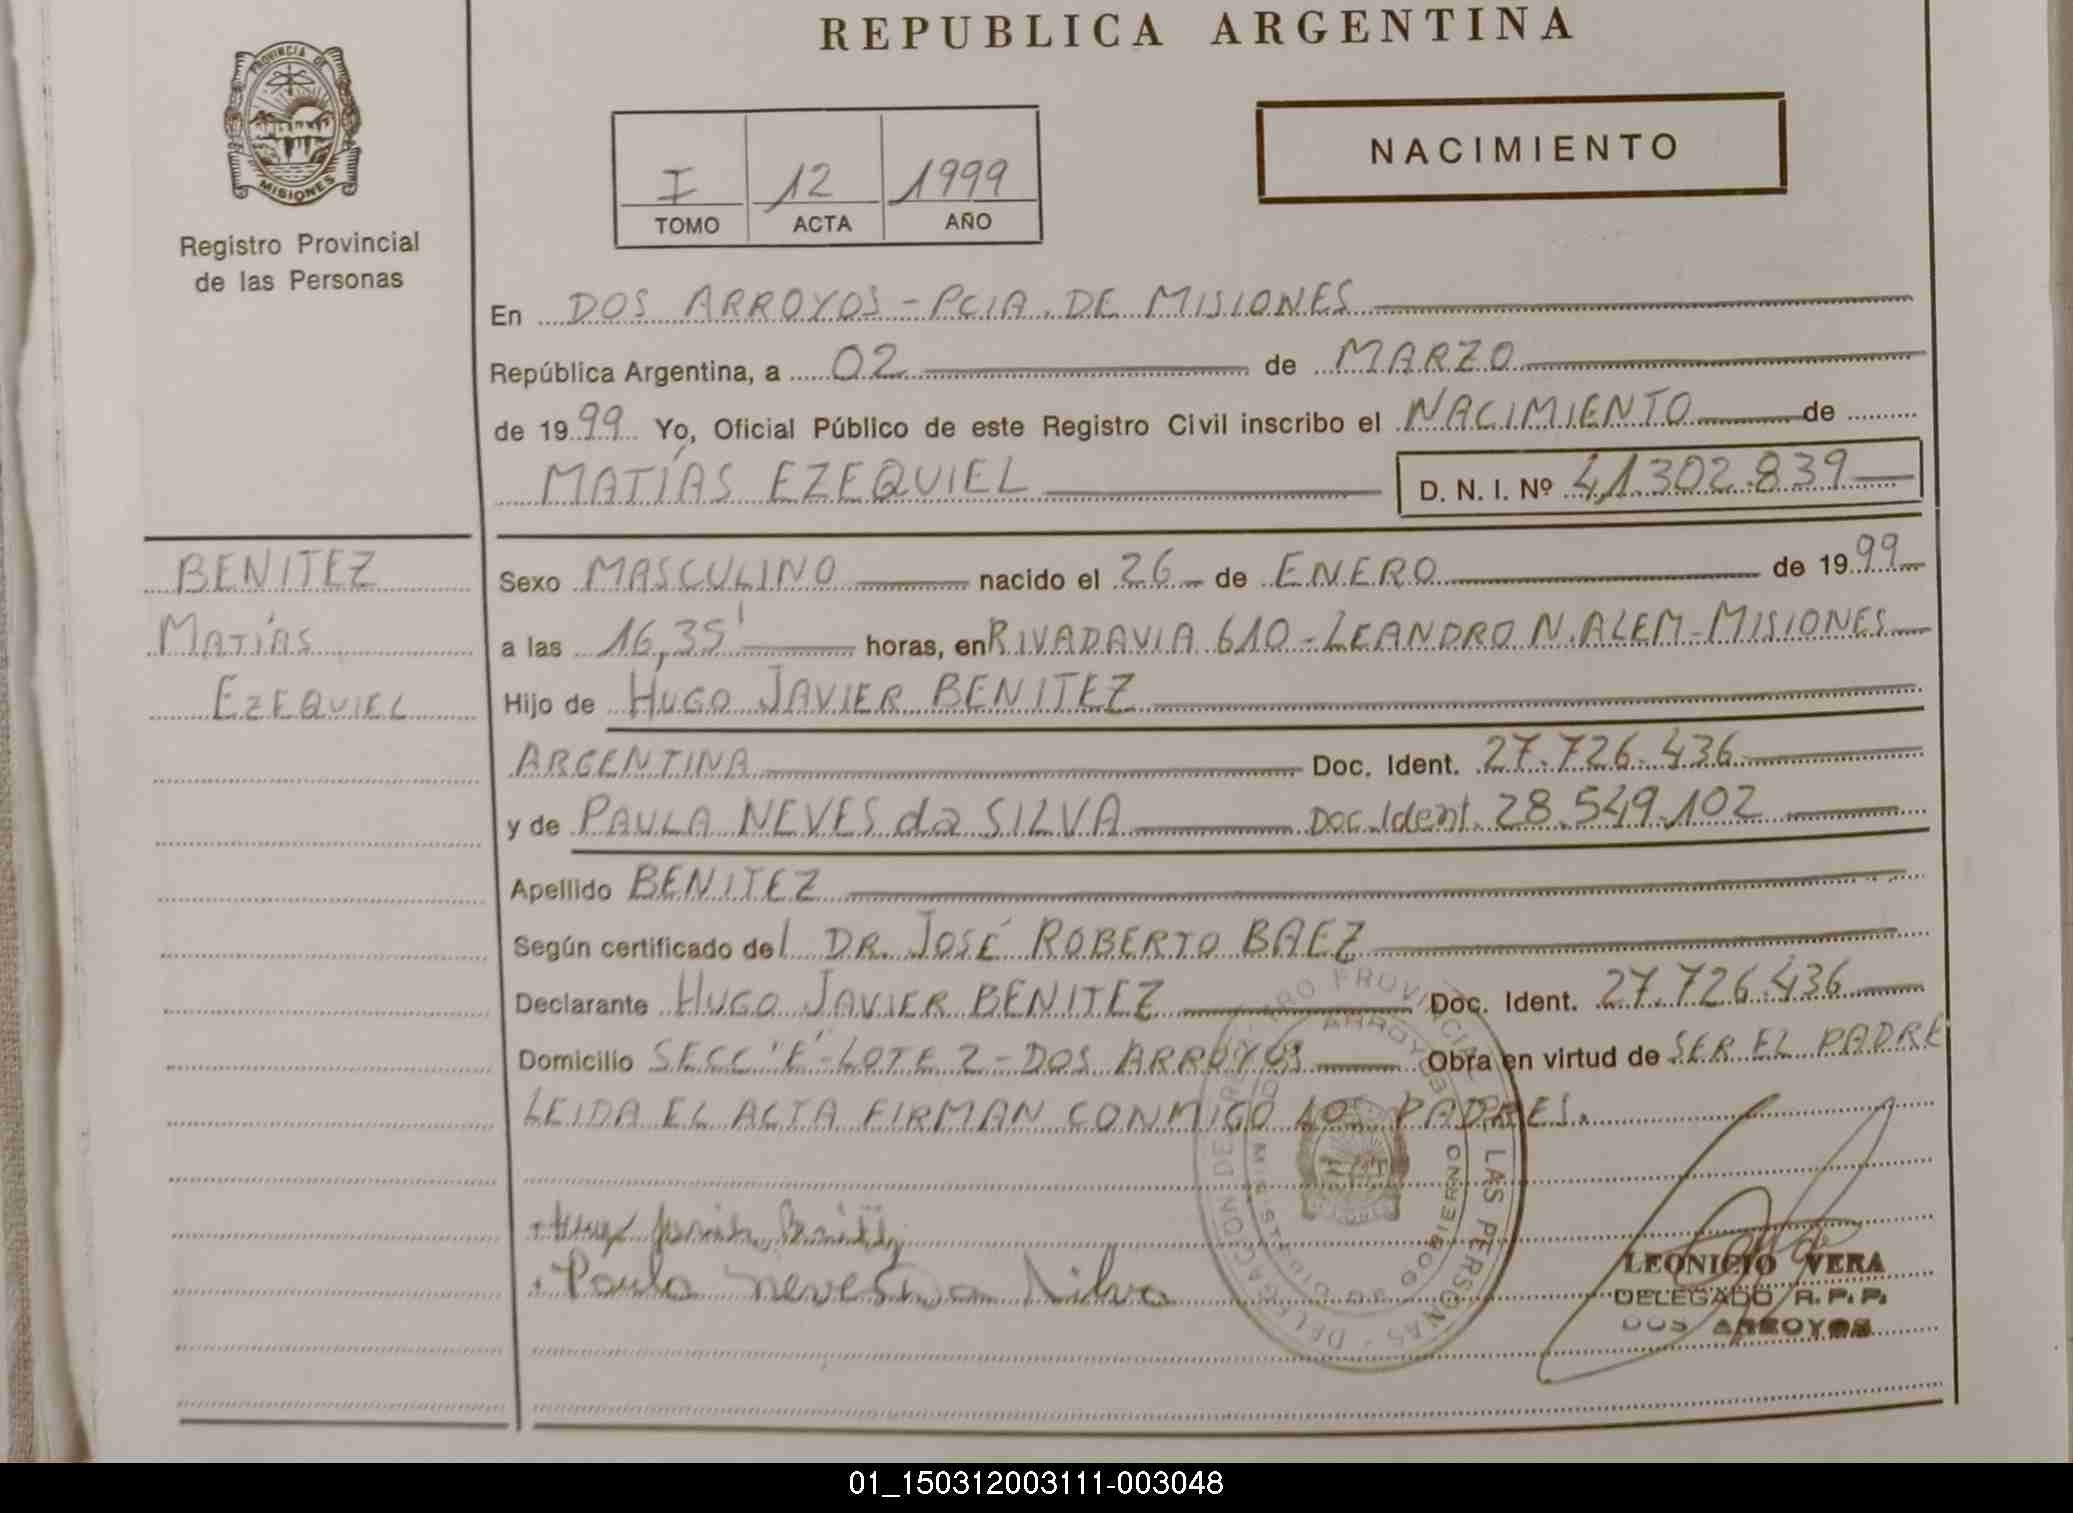 REPUBLICA ARGENTINA
PROVINCIA DE
MISIONES
Registro Provincial
de las Personas
I 12 1999
TOMO ACTA AÑO
NACIMIENTO
En DOS ARROYOS - PCIA. DE MISIONES
República Argentina, a 02 de MARZO
de 1999 Yo, Oficial Público de este Registro Civil inscribo el NACIMIENTO de
MATÍAS EZEQUIEL D. N. I. Nº 41.302.839
BENITEZ
MATÍAS
EZEQUIEL
Sexo MASCULINO nacido el 26 de ENERO de 1999
a las 16,35' horas, en RIVADAVIA 610 - LEANDRO N. ALEM - MISIONES
Hijo de HUGO JAVIER BENITEZ
ARGENTINA Doc. Ident. 27.726.436
y de PAULA NEVES da SILVA Doc. Ident. 28.549.102
Apellido BENITEZ
Según certificado del DR. JOSÉ ROBERTO BAEZ
Declarante HUGO JAVIER BENITEZ Doc. Ident. 27.726.436
Domicilio SECC 'E' - LOTE 2 - DOS ARROYOS Obra en virtud de SER EL PADRE
LEIDA EL ACTA FIRMAN CONMIGO LOS PADRES.
Paula neves Da Silva
LEONICIO VERA
DELEGADO R. P. P.
DOS ARROYOS
01_150312003111-003048